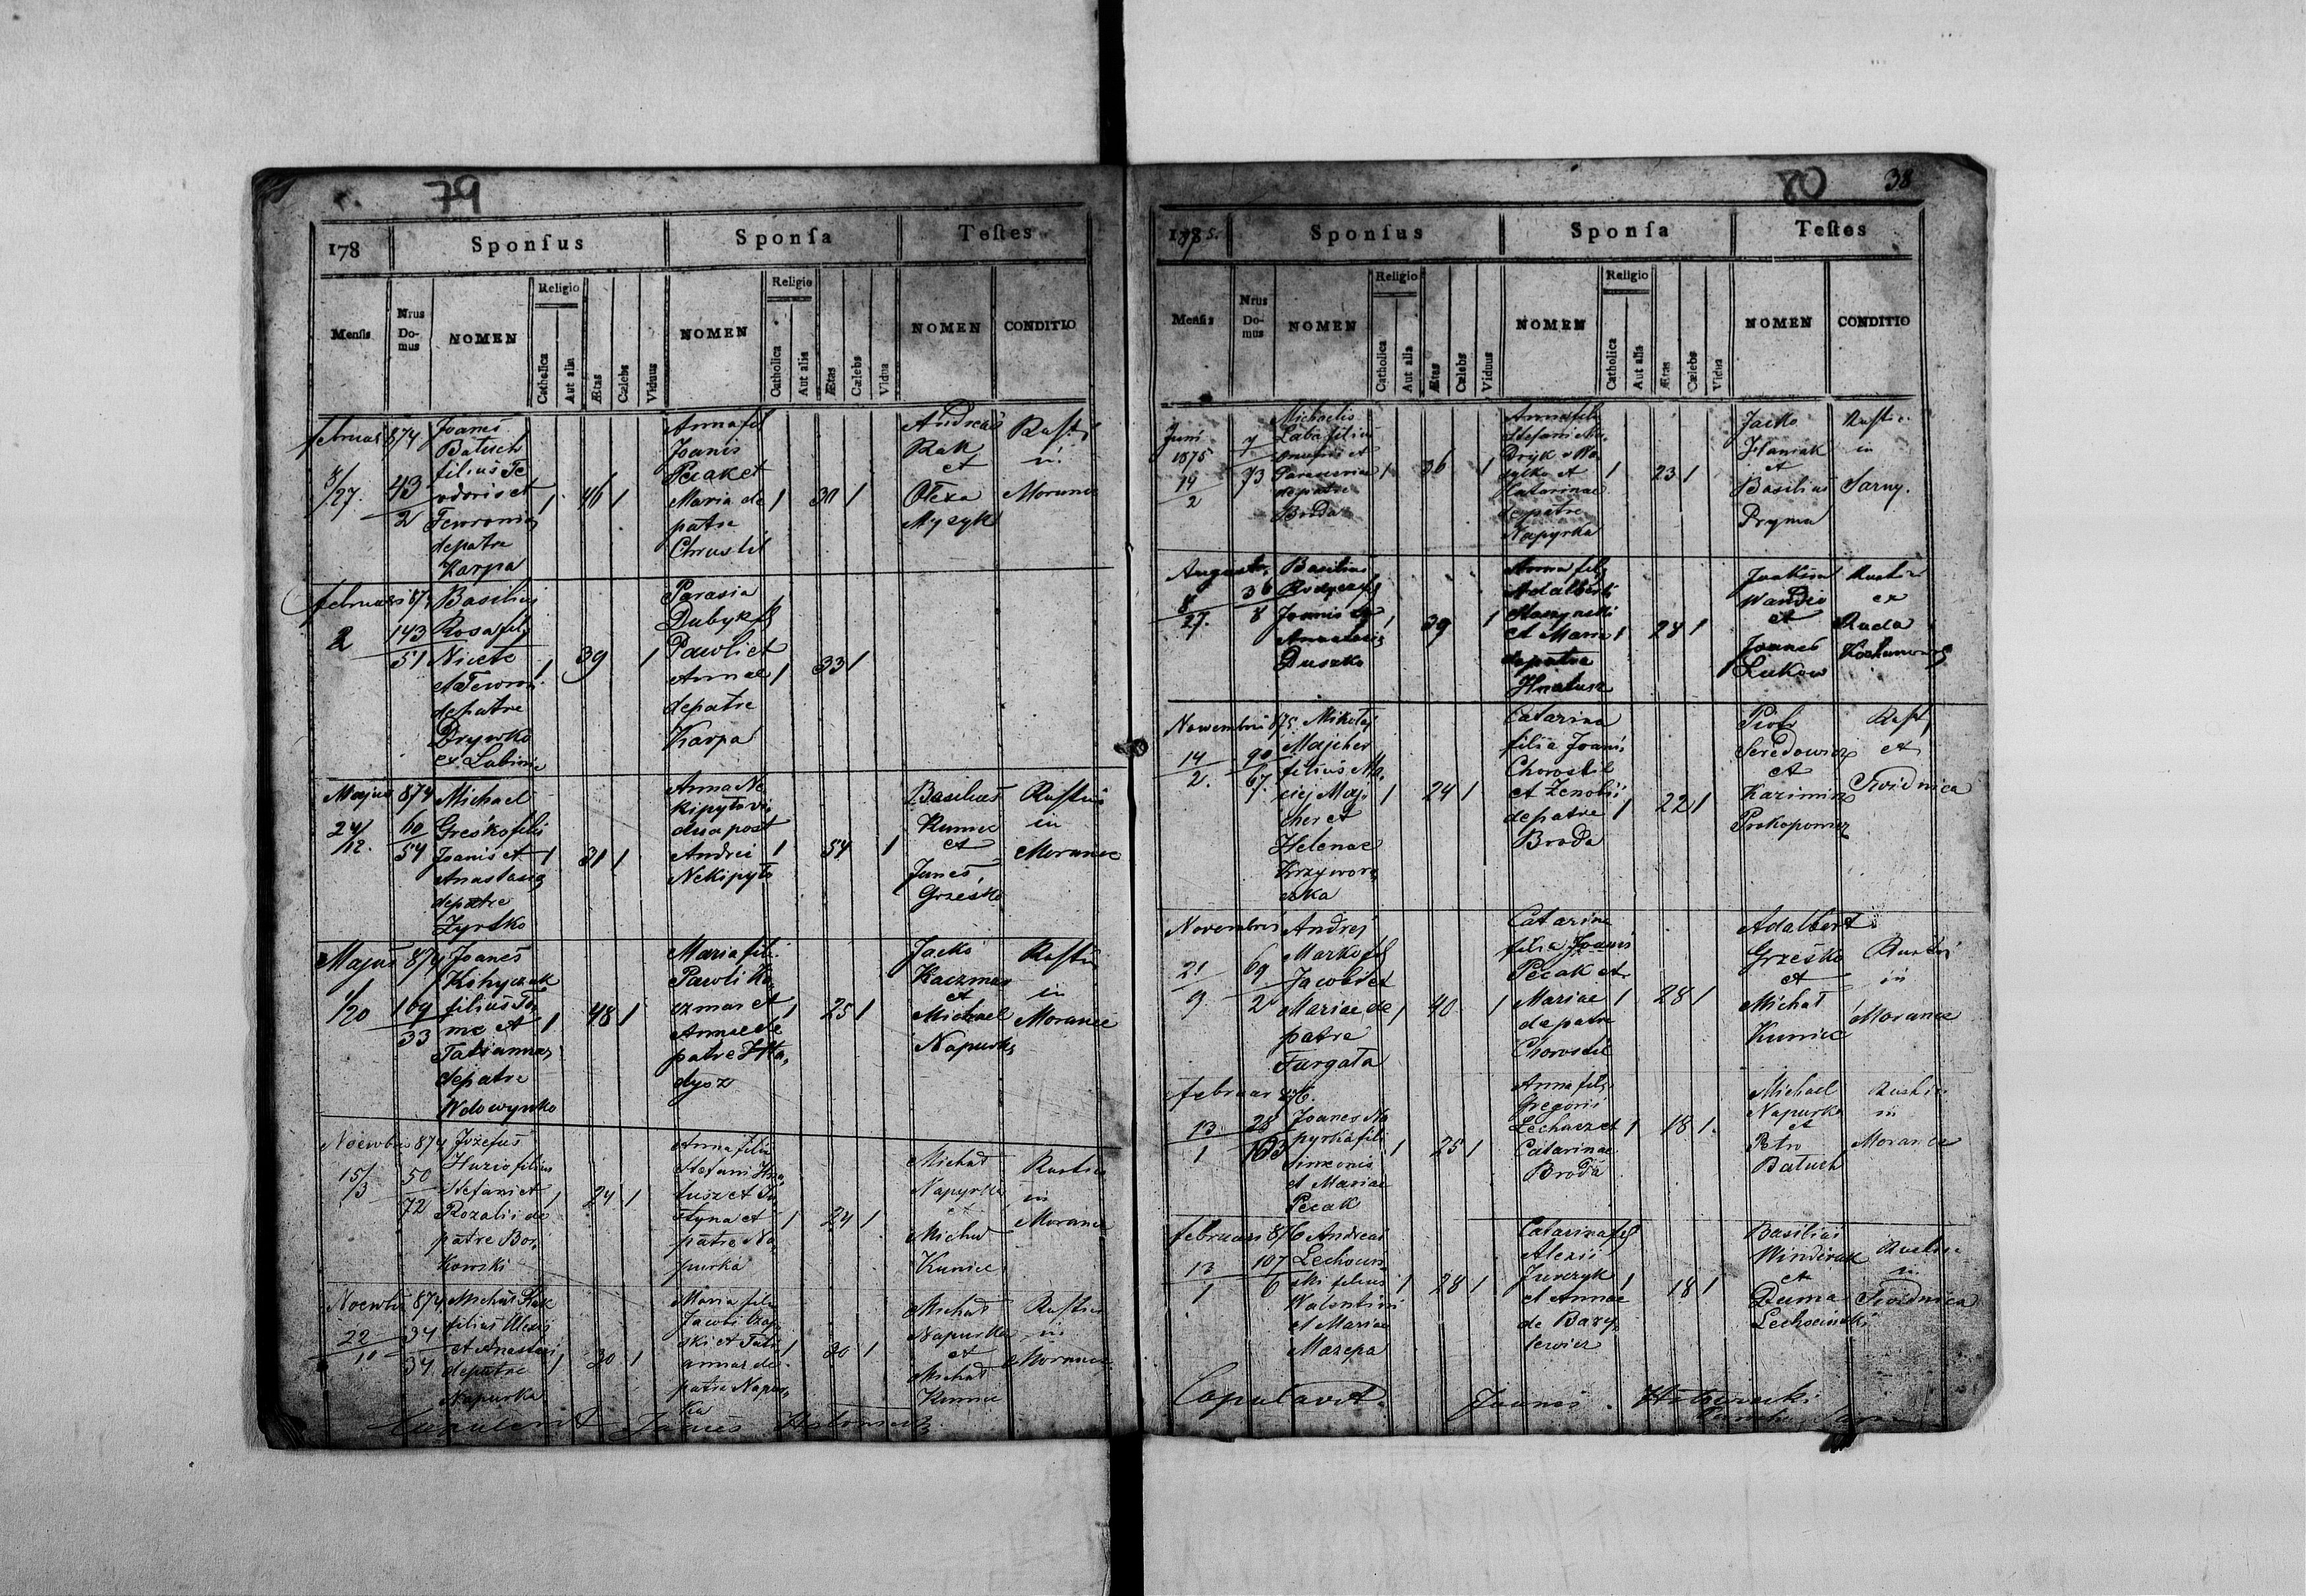 79
178
Sponſus
Sponſa
Teſtes
Menſis
Nrus Do- mus
NOMEN
Religio
Catholica
Aut alia
Ætas
Cælebs
Viduus
NOMEN
Religio
Catholica
Aut alia
Ætas
Cælebs
Vidua
NOMEN
CONDITIO
februar 874
8/27.
43
2
Joanes
Batuch
filius Te
odoris et
depatre
Karpa
1
46
1
Anna fil
Joanis
Pecak et
Maria de
patre
Chrustil
1
1
Andreas
Rak
et
Olexa
Myzyk
Rusti
in
februari 874
2
143
51
Basilius
Rosa fil
Nicete
et
depatre
Drywko
ex
1
39
1
Parasia
Dubyk f
Pawli et
Annae
depatre
Karpa
1
33
1
Majus 874
24/12.
60
54
Michael
Greśko filis
Joanis et
Anastasia
depatre
Zyrsko
1
31
1
Anna Ne
kipyło vi
dua post
Andrei
Nekipyło
1
54
1
Basilius
Kuniec
et
Greśko
Rustici
in
Morance
Majus 874
1/20
169
33
Joanes
filius To
me et
Tatianna
depatre
Wdowynko
1
48
1
Maria fili
Pawli Ka
czmar et
Annae de
patre
dysz
1
25
1
Jacko
Kaczmar
et
Michael
Napurka
Rustici
in
Morance
Noewbris 874
15/3
50
72
Jozefus
filius
Stefani et
Rozalii de
patre Bor
kowski
1
24
1
Anna filia
Stefani Hna
tusz et Ju
styna et
patre Na
purka
1
24
1
Michał
Napyrka
et
Michał
Kuniec
Rustici
in
Morance
874
22
10
34
34
Michał Rak
filius Alexis
et Anastasi
depatre
Napurka
1
30
1
Maria filia
Jacobi
ski et Tati
annae de
patre Napur
ka
1
20
1
Michał
Napurka
et
Michał
Kuniec
Rustici
in
Morance
80
38
1875.
Sponſus
Sponſa
Teſtes
Menſis
Nrus Do- mus
NOMEN
Religio
Catholica
Aut alia
Ætas
Cælebs
Viduus
NOMEN
Religio
Catholica
Aut alia
Ætas
Cælebs
Vidua
NOMEN
CONDITIO
Juni
1875
14
2
7
73
Michaelis
Laba filius
Onufrii et
depatre
Broda
1
36
1
Anna fil
Stefani
et
Katarinae
depatre
Napyrka
1
23
1
Jacko
Haniak
et
Basilius
Pryma
Rustic
in
Sarny.
August.
8
29.
36
8
Basilius
Joanis et
Anastasii
Duszko
1
39
1
Anna fil
Adalberti
et Maria
depatre
Hnatusz
1
24
1
Joakim
Wandio
et
Joanes
Lukow
Rustici
ex
Ruda
Nowembris 875.
14
2.
90
67.
Mikołaj
Majcher
filius Ma
ciej Maj
cher et
Helenae
Krzyworą
czka
1
24
1
Catarina
filia Joanis
Chorostil
et Zenobii
depatre
Broda
1
22
1
Piotr
Seredowicz
et
Kazimirz
Prokopowicz
Rust
et
Novembris
21
9.
69
2
Andrej
Marko f
Jacobi et
Mariae de
patre
Furgała
1
40
1
Catarina
filia Joanis
Pecak et
Mariae
depatre
Chorostil
1
28
1
Adalbert
Grześko
et
Michał
Kuniec
Rustici
in
Morance
februar 876.
13
1
28
163
Joanes Na
pyrka fili
Simeonis
et Mariae
Pecak
1
25
1
Anna fil
Gregorii
Lechacz et
Catarinae
Broda
1
18
1
Michael
Napurka
et
Petro
Batuch
Rustici
in
Morance
februari 876
13
1
107
6
Andreas
Lechocin
ski filius
Walentini
et Mariae
Mazepa
1
28
1
Catarina f
Alexii
Jurczyk
et Annae
de Bazy
lewicz
1
18
1
Basilius
et
Duma
Lechocinski
Rustici
in
Copulavit
Joanes